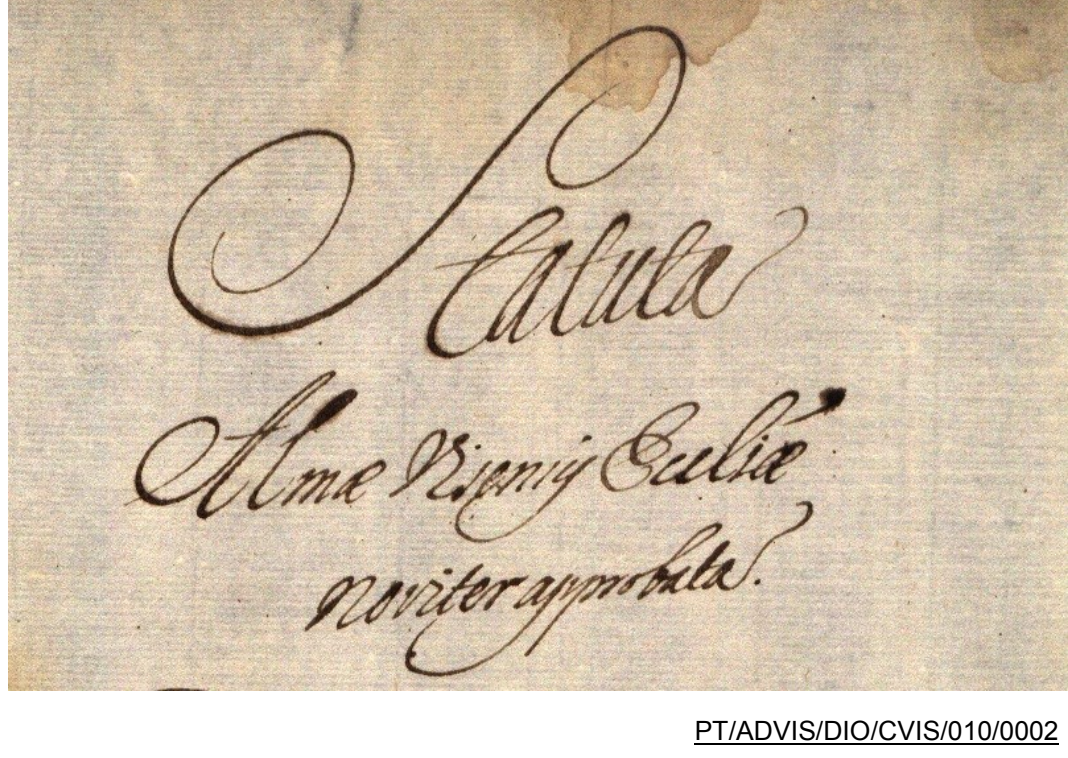 Statuta
Almæ Visensis Eccliæ
noviter approbata.
PT/ADVIS/DIO/CVIS/010/0002